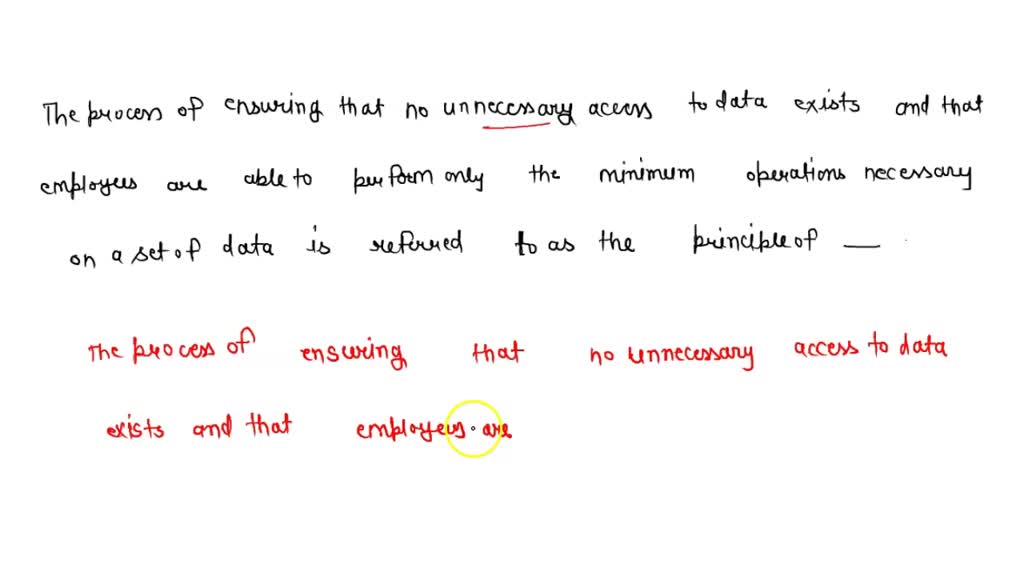 The process of ensuring that no unnecessary access to data exists and that
employees are able to perform only the minimum operations necessary
on a set of data is referred to as the principle of __
The process of ensuring that no unnecessary access to data
exists and that employees are